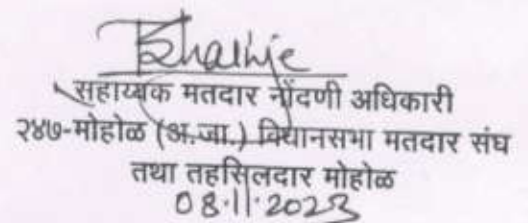 सहाय्यक मतदार नोंदणी अधिकारी
२४७-मोहोळ (अ.जा.) विधानसभा मतदार संघ
तथा तहसिलदार मोहोळ
08.11.2023